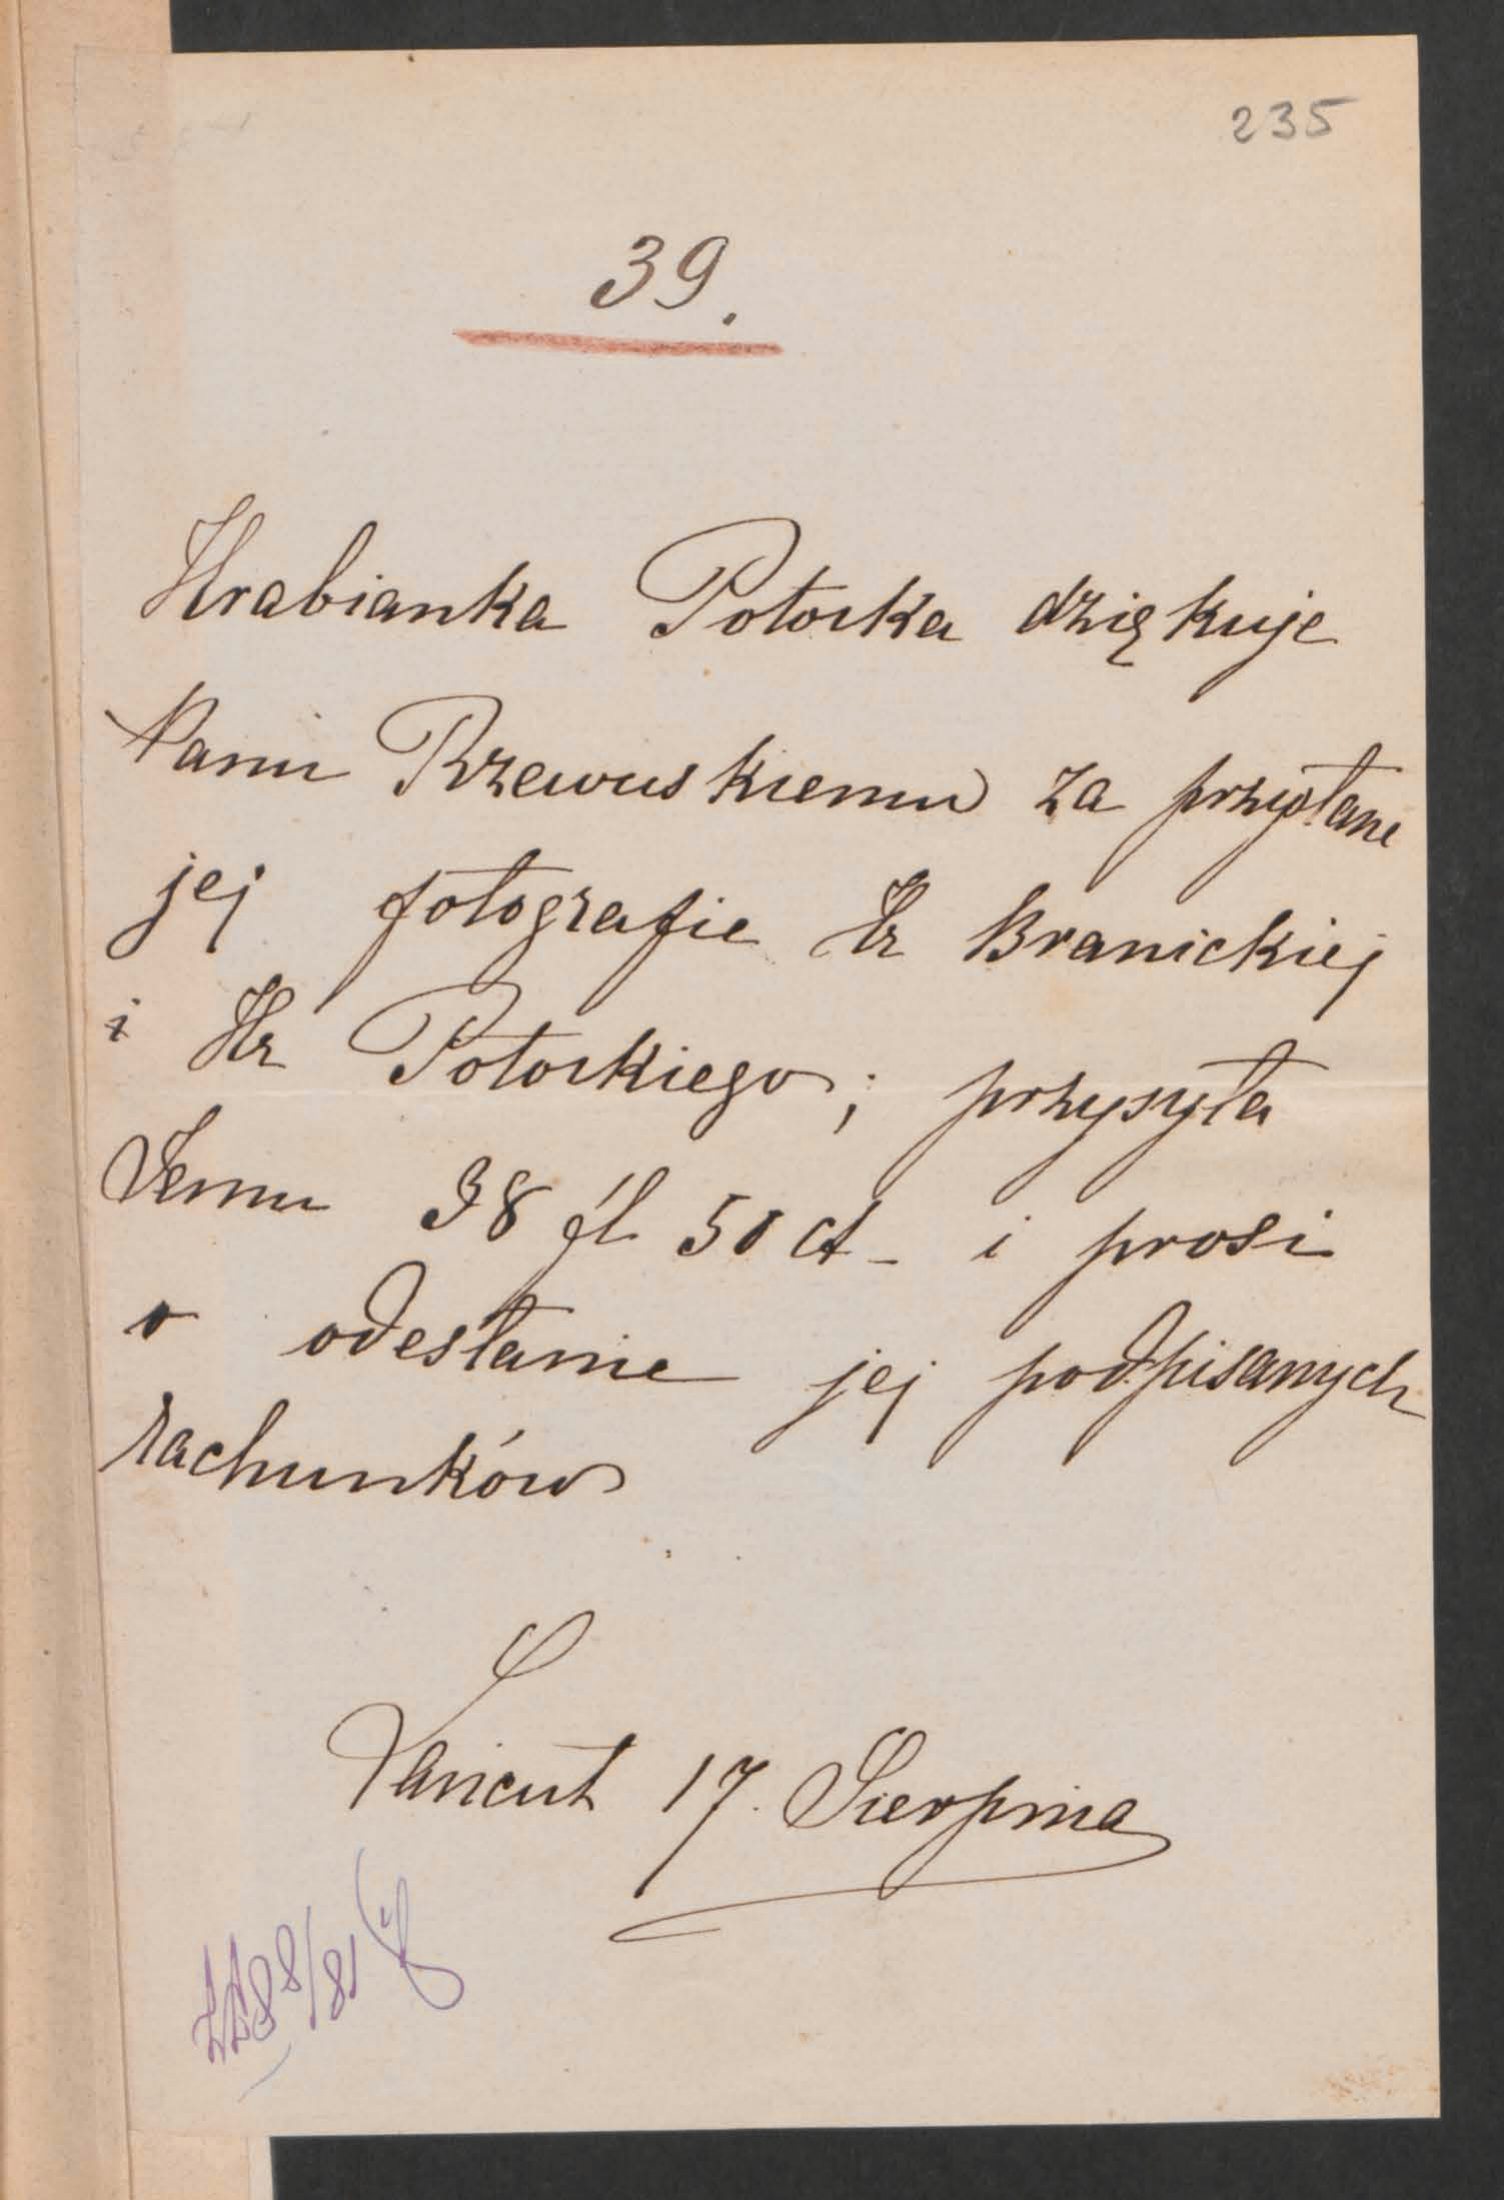 235
39.
Hrabianka Potocka dziękuje
Panu Rzewuskiemu za przysłane
jej fotografie Hr Branickiej
i Hr Potockiego; przysyła
Jemu 38 fl 50 ct - i prosi
o odesłanie jej podpisanych
rachunków
Łańcut 17. Sierpnia